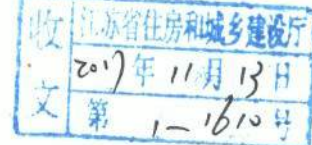 收文
江苏省住房和城乡建设厅
2017年11月13日
第1-1610号